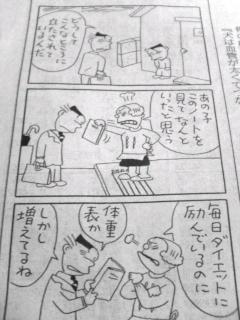 どうして
こんなところに
立たされて
いるんだ
あの子
このノートを
見てなんと
いったと思う
毎日ダイエットに
励んでいるのに
体重
表か
しかし
増えてるね